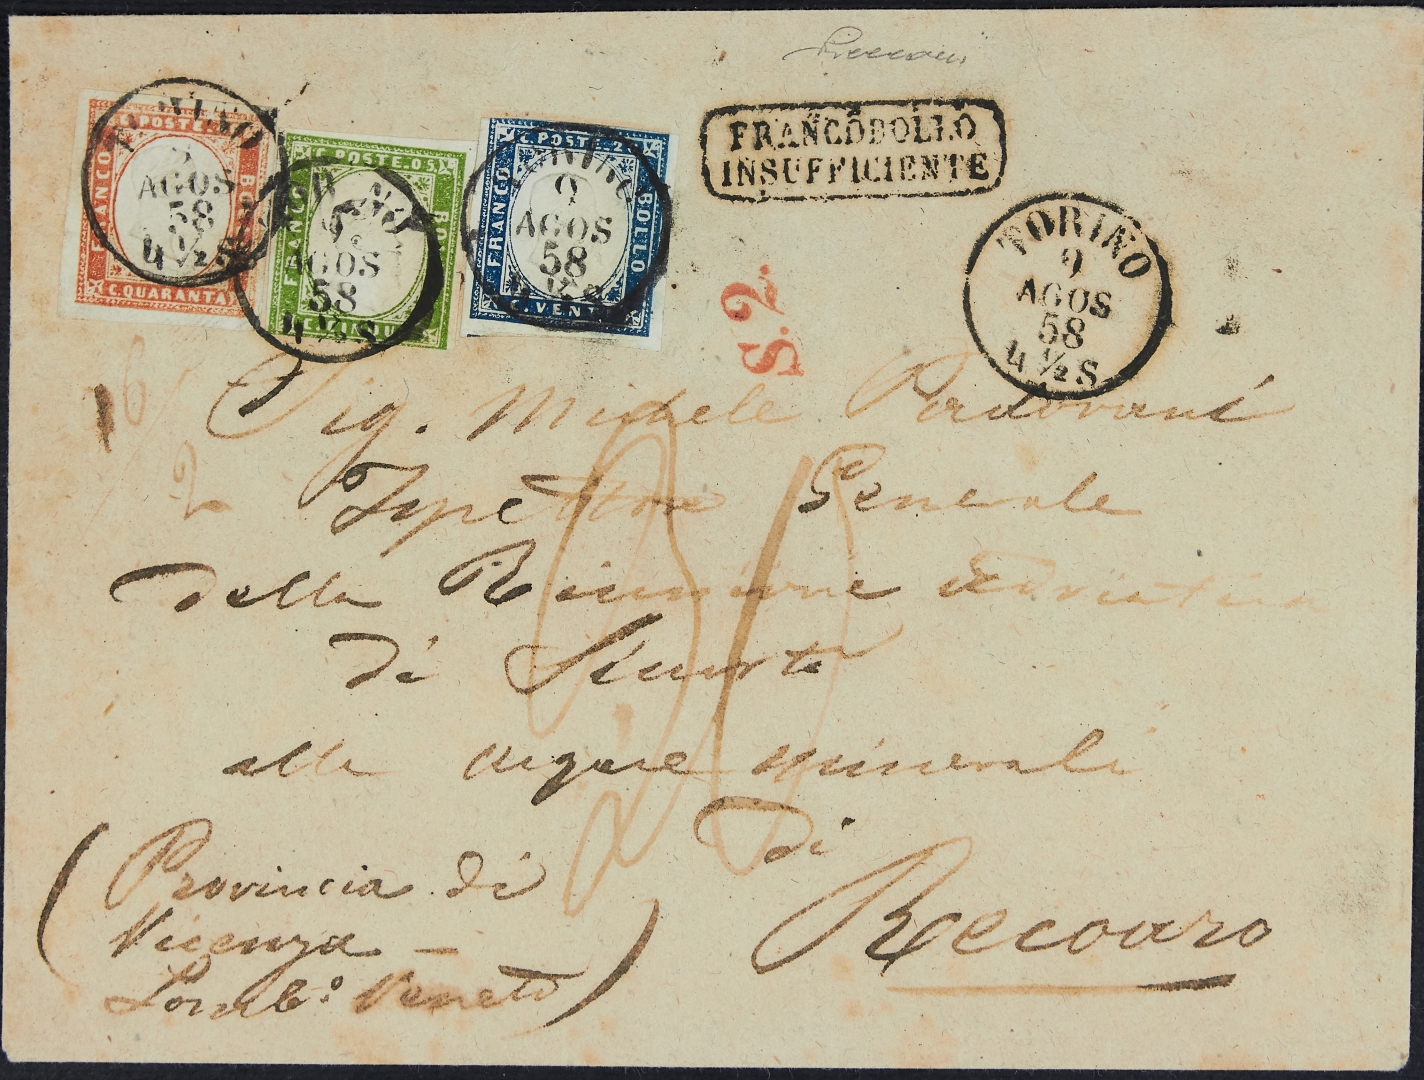 FRANCOBOLLO
INSUFFICIENTE
C. POSTE
FRANCO
C. QUARANTA
TORINO
AGOS
58
4 ½ S
C. POSTE. 05
FRANCO
BO
TORINO
9
AGOS
58
4 ½ S
C. POSTE. 2
FRANCO
BOLLO
C. VENT
TORINO
9
AGOS
58
4 ½ S
TORINO
9
AGOS
58
4 ½ S
S. 2.
Sig. Michele Padovani
Ispettore Generale
della Riunione Adriatica
di Sicurtà
alle acque minerali
di
Recoaro
(Provincia di
Vicenza –
Lomb.º Veneto)